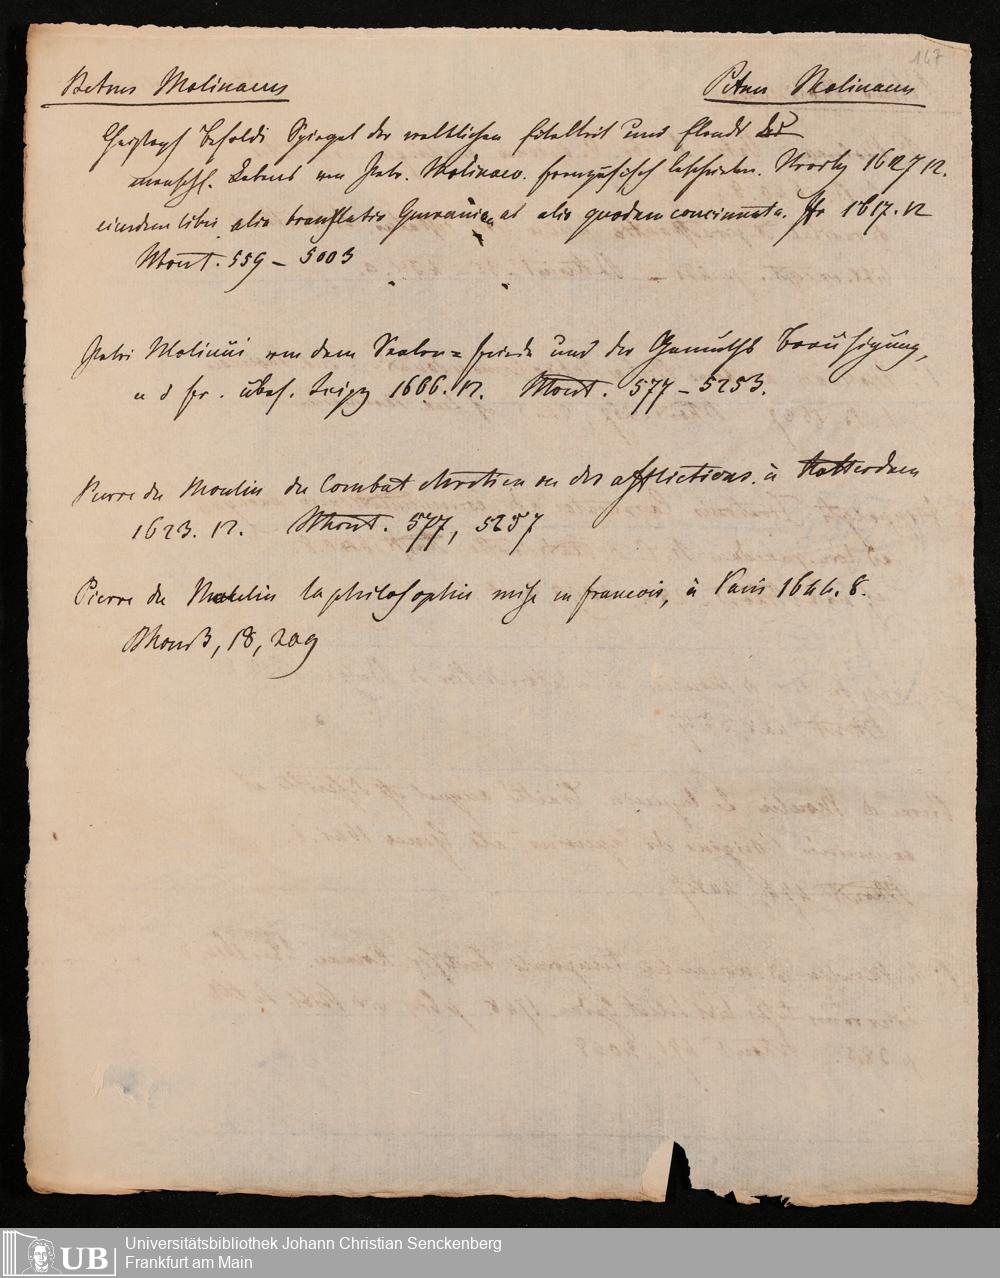 167
Petrus Molinaeus Petrus Molinaeus
Christoph Besoldi Spiegel der weltlichen Eitelkeit und Elends des
menschl. Lebens von Petr. Molinaeo. französisch beschrieben. 1627 12.
eiusdem libri alia translatio Germanica ab alio quodam concinnata. 1617. 12
Mont. 559 – 5003
Petri Molinäi von dem Seelen = Friede und der Gemüths Beruhigung,
a d fr. übers. Leipzig 1686. 12. Mont. 577 – 5253.
Pierre du Moulin du Combat chretien ou des afflictions. à Rotterdam
1623. 12. Mont. 577, 5257
Pierre du Moulin la philosophie mise en francois, à Paris 1644. 8.
18, 209
UB Universitätsbibliothek Johann Christian Senckenberg
Frankfurt am Main